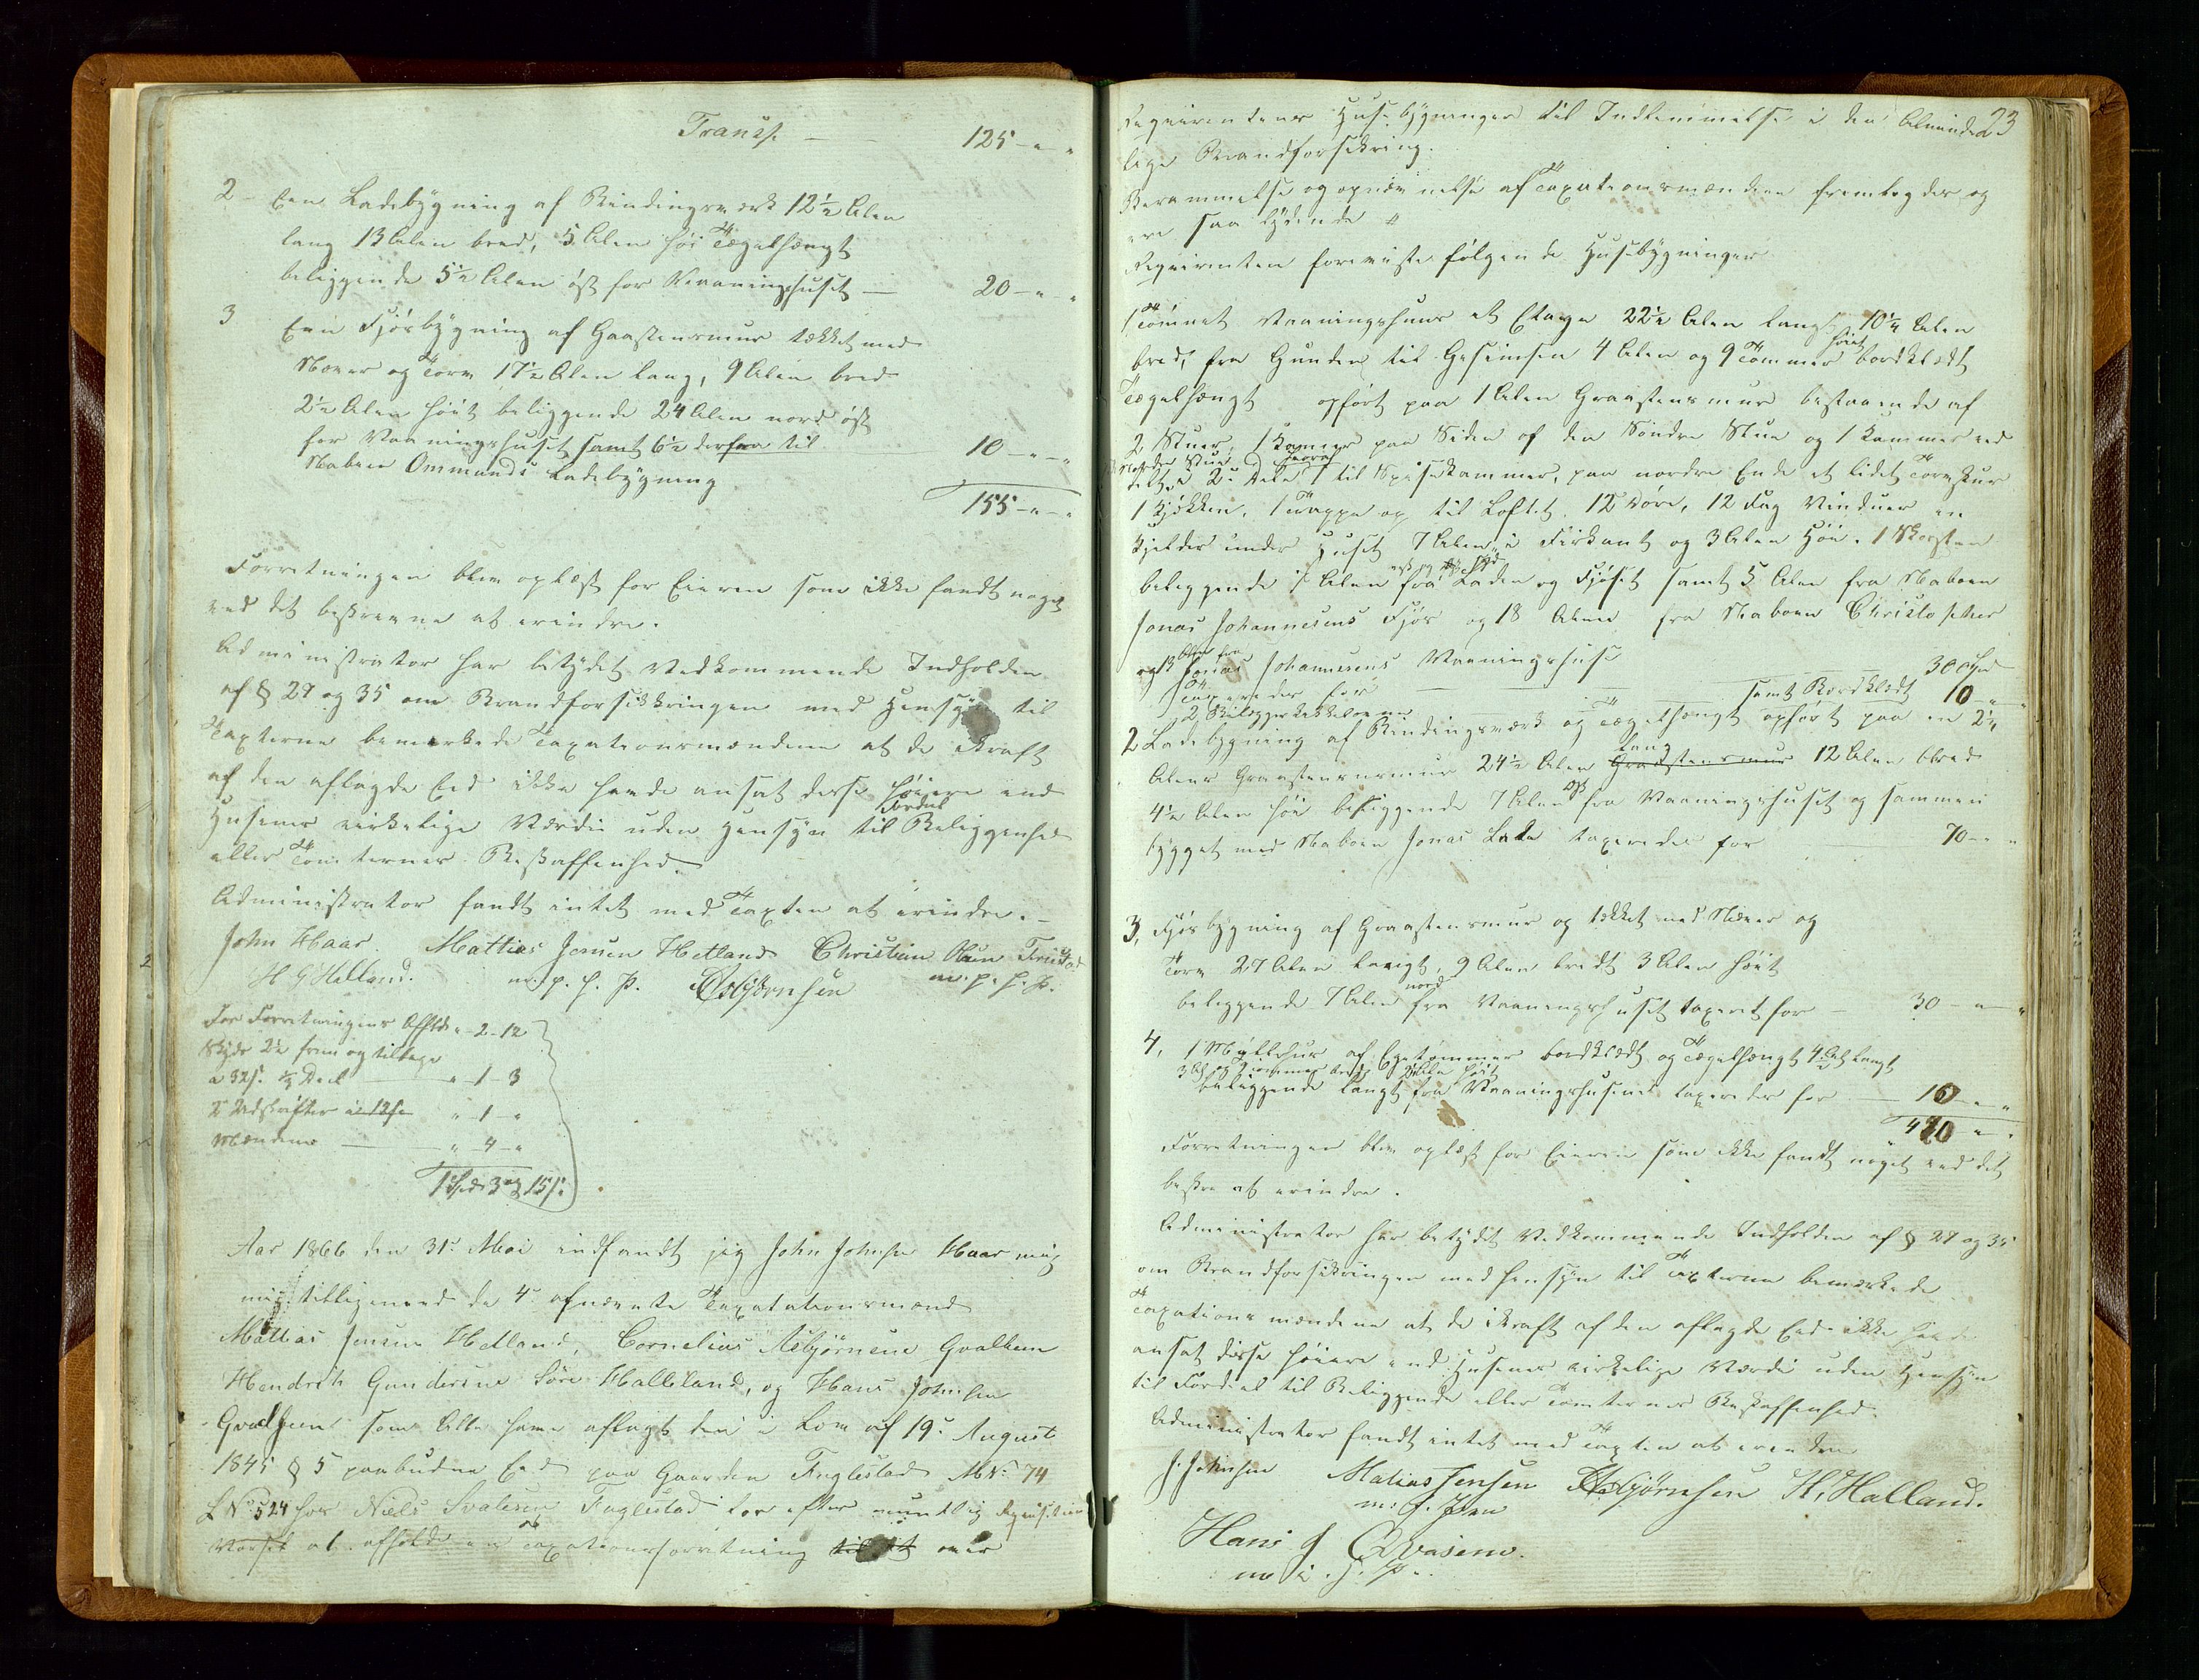 Transp. — 125 - " "
2 - Een Ladebygning af Bindingsværk 12½ Alen
lang 13 Alen bred, 5 Alen höi Tægelhængt
beliggende 5½ Alen öst for Vaaningshuset — 20 - " "
3 Een Fjösbygning af Graastensmur tækket med
Næver og Torv 17½ Alen lang, 9 Alen bred
2½ Alen höit beliggende 24 Alen nord öst
for Vaaningshuset samt 6½ derfra til 10 - " "
Naboen Ommunds Ladebygning
155 - " "
Forretningen blev oplæst for Eieren som ikke fandt noget
ved det beskrevne at erindre.
Administrator har betydet Vedkommende Indholden
af § 27 og 35 om Brandforsikkringen med Hensyn til
Taxterne bemærkede Taxationsmændene at de ikraft
af den aflagde Eed ikke havde ansat disse höiere end
Husenes virkelige Værdie uden Hensyn til Fordeel Beliggenhed
eller Tomternes Beskaffenhed.
Administrator fandt intet med Taxten at erindre. -
John Haar. Mattias Jensen Hetland Christian Olsen
H G Helland. m. p. h. P. CAsbjörnsen m. p. h. P.
For Forretningens Affh. " - 2 - 12
Skyds 2½ frem og tilbage
a 32 s. ½ Deel " - 1 - 3
2 Udskrifter a 12 s. " - 1 - "
Mændene — " - 4 - "
1 Spd 3 15 s.
Aar 1866 den 31. Mai indfandt jeg John Johnsen Haar mig
mig tilligemed de 4 afnævnte Taxatationsmænd
Mattias Jensen Hetland, Cornelius Asbjörnsen Gvalhem
Hendrik Gundersen Söre Halleland, og Hans Johnsen
Gvalhem som Alle have aflagt den i Lov af 19. August
1845 § 5 paabudne Eed paa Gaarden Fuglestad MN. 74
LN. 524 hos Niels Svalesen Fuglestad for efter mundtlig Rqvisition
at afholde en Taxationsforretning over
23
Reqvirentens Husebygninger til Indlemmelse i den Alminde
lige Brandforsikring.
Berammelse og opnævnelse af Taxationsmændene fremlagdes og
ere saa lydende
Reqvirenten foreviste fölgende Husebygninger
1 Tömret Vaaningshuus et Etage 22½ Alen langt 10½ Alen
bred, fra Grunden til Gesimsen 4 Alen og 9 Tommer höit bordklædt
Tægelhængt opfört paa 1 Alen Graastensmur bestaaende af
2 Stuer, 1 Kammer paa Siden af den Söndre Stue og 1 Kammer ved
Nordre Stue deelt i 2 Dele 1 til Spisekammer, paa nordre Ende et lidet Torvskur
1 Kjökken, 1 Trappe op til Loftet 12 Döre, 12 Fag Vinduer en
Kjelder under Huset 7 Alen i Firkant og 3 Alen Höi. 1 Skorsten
beliggende 7 Alen fra Laden og Fjöset samt 5 Alen fra Naboen
Jonas Johannesens Fjös og 18 Alen fra Naboen Christopher
og 13 Alen fra Jonas Johannesens Vaaningshuse
Taxeredes for 300 Spd
2 Bilæggerkakkelovne 10 " "
2 Ladebygning af Bindingsværk samt Bordklædt og Tægelhængt opfört paa en 2½
Alens Graastensmur 24½ Alen lang Graastensmur 12 Alen bred
4½ Alen höi beliggende 7 Alen öst fra Vaaningshuset og sammen
bygget med Naboen Jonas Lade taxeredes for 70 - " "
3, Fjösbygning af Graastensmur og tækket med Næver og
Torv 27 Alen langt, 9 Alen bredt 3 Alen höit
beliggende 7 Alen nord fra Vaaningshuset taxeret for — 30 - " "
4, 1 Möllehus af Egetömmer bordklædt og Tægelhængt 4 Al. langt
3 Al. Tommer bredt 2½ Alen höit
beliggende langt fra Vaaningshusene taxeredes for 10 " "
420 " "
Forretningen blev oplæst for Eieren som ikke fandt noget ved det
beskre at erindre.
Administrator har betydet Vedkommende Indholden af § 27 og 35
om Brandforsikringen med Hensyn til Taxterne bemærkede
Taxationsmændene at de ikraft af den aflagde Eed ikke havde
ansat disse höiere end Husenes virkelige Værdi uden Hensyn
til Fordeel til Beliggende eller Tomternes Beskaffenhed.
Administrator fandt intet med Taxten at erindre
J. Johnsen Matias Jensen CAsbjörnsen H, Halland.
m: f. Pen
Hans J Qvasem.
m i. f. P.